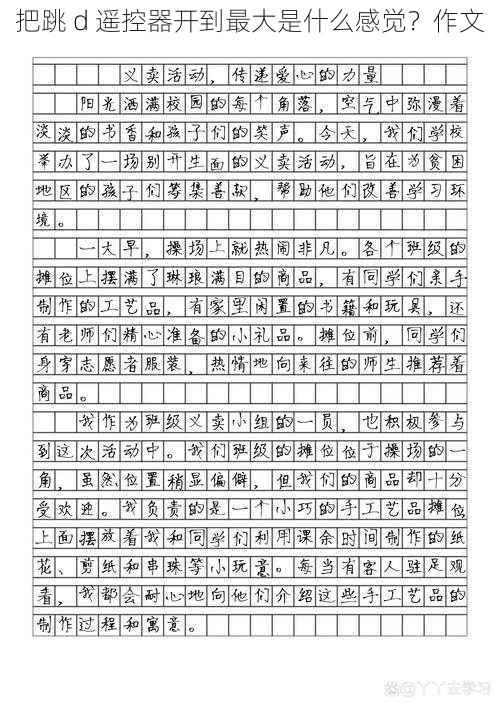 把跳 d 遥控器开到最大是什么感觉？作文
义卖活动，传递爱心的力量
阳光洒满校园的每个角落，空气中弥漫着
淡淡的书香和孩子们的笑声。今天，我们学校
举办了一场别开生面的义卖活动，旨在为贫困
地区的孩子们筹集善款，帮助他们改善学习环
境。
一大早，操场上就热闹非凡。各个班级的
摊位上摆满了琳琅满目的商品，有同学们亲手
制作的工艺品，有家里闲置的书籍和玩具，还
有老师们精心准备的小礼品。摊位前，同学们
身穿志愿者服装，热情地向来往的师生推荐着
商品。
我作为班级义卖小组的一员，也积极参与
到这次活动中。我们班级的摊位位于操场的一
角，虽然位置稍显偏僻，但我们的商品却十分
受欢迎。我负责的是一个小巧的手工艺品摊位
上面摆放着我和同学们利用课余时间制作的纸
花、剪纸和串珠等小玩意。每当有客人驻足观
看，我都会耐心地向他们介绍这些手工艺品的
制作过程和寓意。
@丫丫去学习